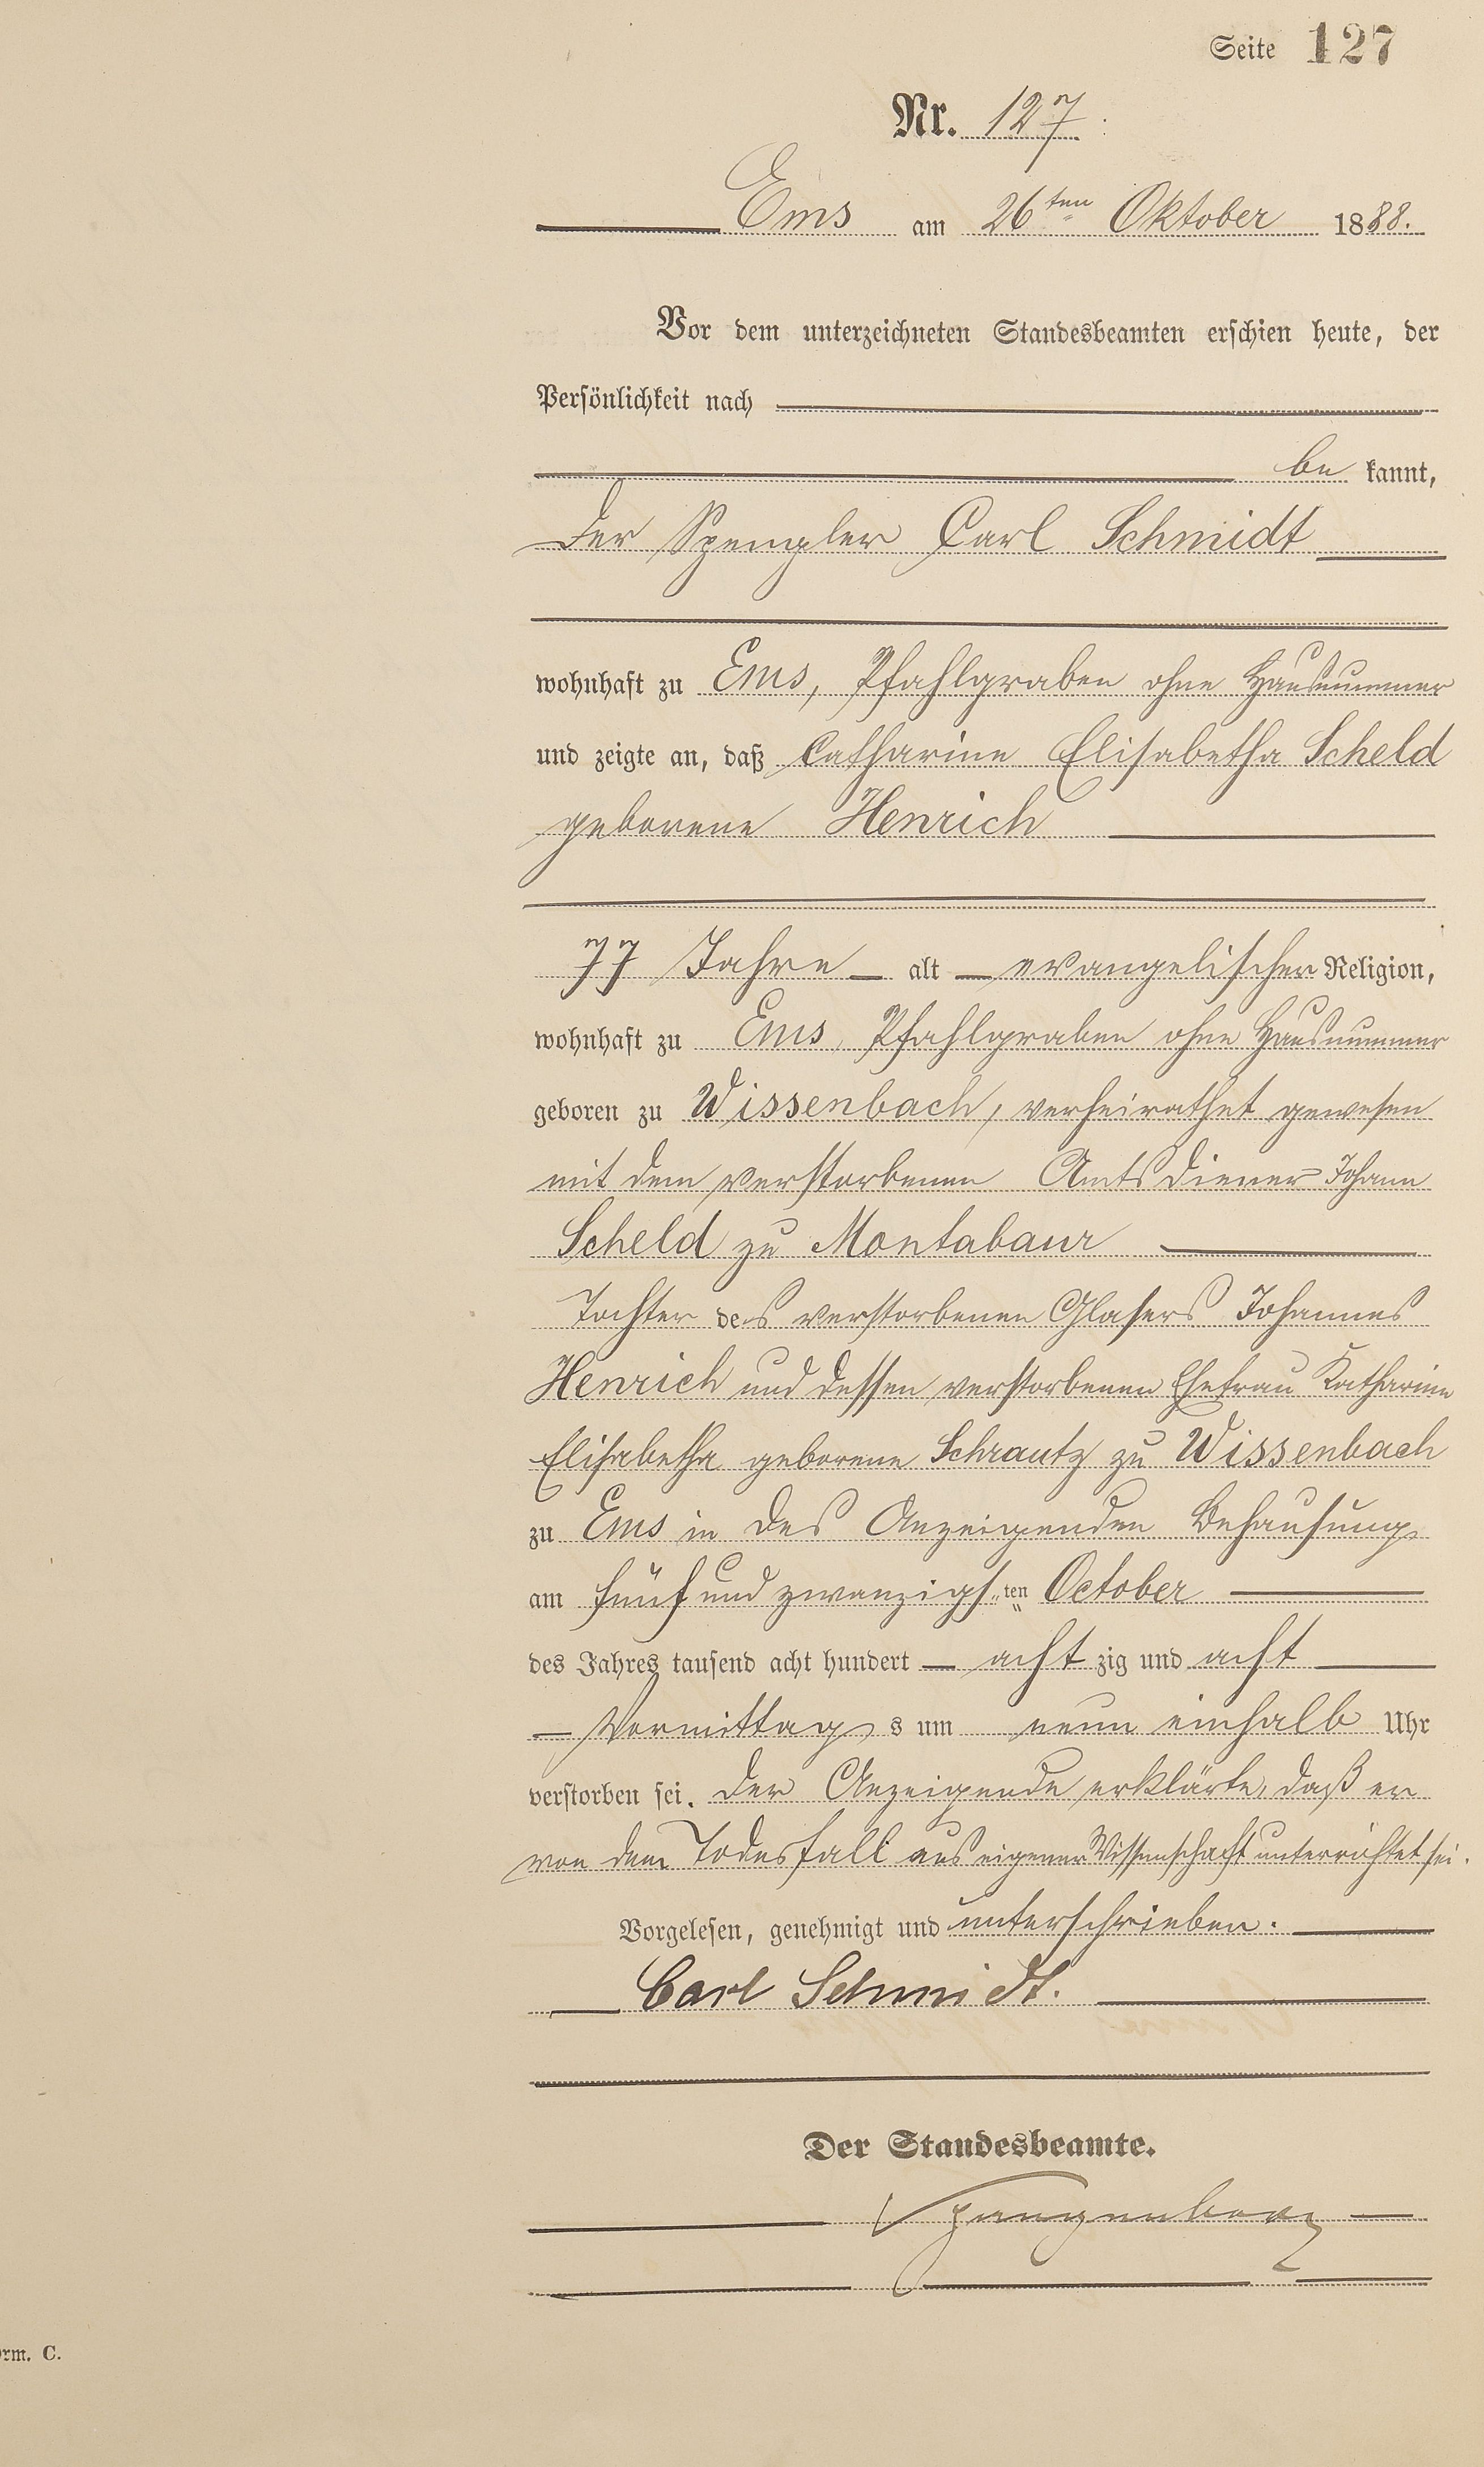 Seite 127
Nr. 127
Ems am 26ten Oktober 1888.
Vor dem unterzeichneten Standesbeamten erschien heute, der
Persönlichkeit nach
be kannt,
der Spengler Carl Schmidt
wohnhaft zu Ems, Pfahlgraben ohne Hausnummer
und zeigte an, daß Catharine Elisabetha Scheld
geborene Henrich
77 Jahre alt evangelischer Religion,
wohnhaft zu Ems, Pfahlgraben ohne Hausnummer
geboren zu Wissenbach, verheirathet gewesen
mit dem verstorbenen Amtsdiener Johann
Scheld zu Montabaur
Tochter des verstorbenen Glasers Johannes
Henrich und dessen verstorbenen Ehefrau Katharine
Elisabetha geborene Schrautz zu Wissenbach
zu Ems in des Anzeigenden Behausung
am fünf und zwanzigsten October
des Jahres tausend acht hundert acht zig und acht
Vormittag s um neun einhalb Uhr
verstorben sei. Der Anzeigende erklärte, daß er
von dem Todesfall aus eigener Wissenschaft unterrichtet sei.
Vorgelesen, genehmigt und unterschrieben.
Carl Schmidt.
Der Standesbeamte.
orm. C.